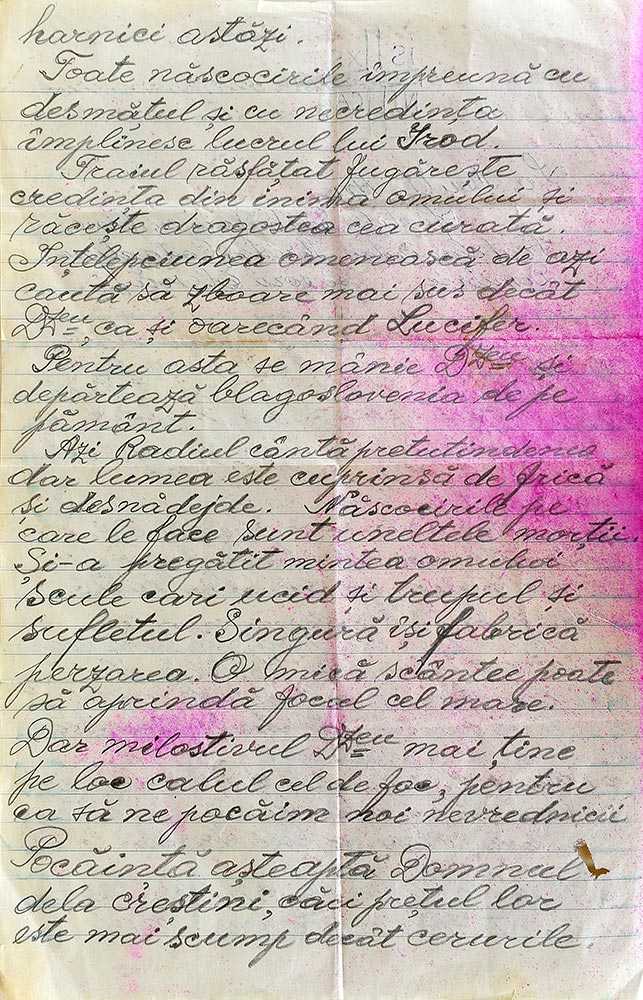 harnici astăzi.
Toate născocirile împreună cu
desmățul și cu necredința
împlinesc lucrul lui Irod.
Traiul răsfățat fugărește
credința din inima omului și
răcește dragostea cea curată.
Ințelepciunea omenească de azi
caută să zboare mai sus decât
Dzeu, ca și oarecând Lucifer.
Pentru asta se mânie Dzeu și
depărtează blagoslovenia de pe
pământ.
Azi Radiul cântă pretutindenea
dar lumea este cuprinsă de frică
și desnădejde. Născocirile pe
care le face sunt uneltele morții.
Și-a pregătit mintea omului
scule cari ucid și trupul și
sufletul. Singură își fabrică
perzarea. O mică scântee poate
să aprindă focul cel mare.
Dar milostivul Dzeu mai ține
pe loc calul cel de foc, pentru
ca să ne pocăim noi nevrednicii
Pocăință așteaptă Domnul
dela creștini, căci prețul lor
este mai scump decât cerurile.